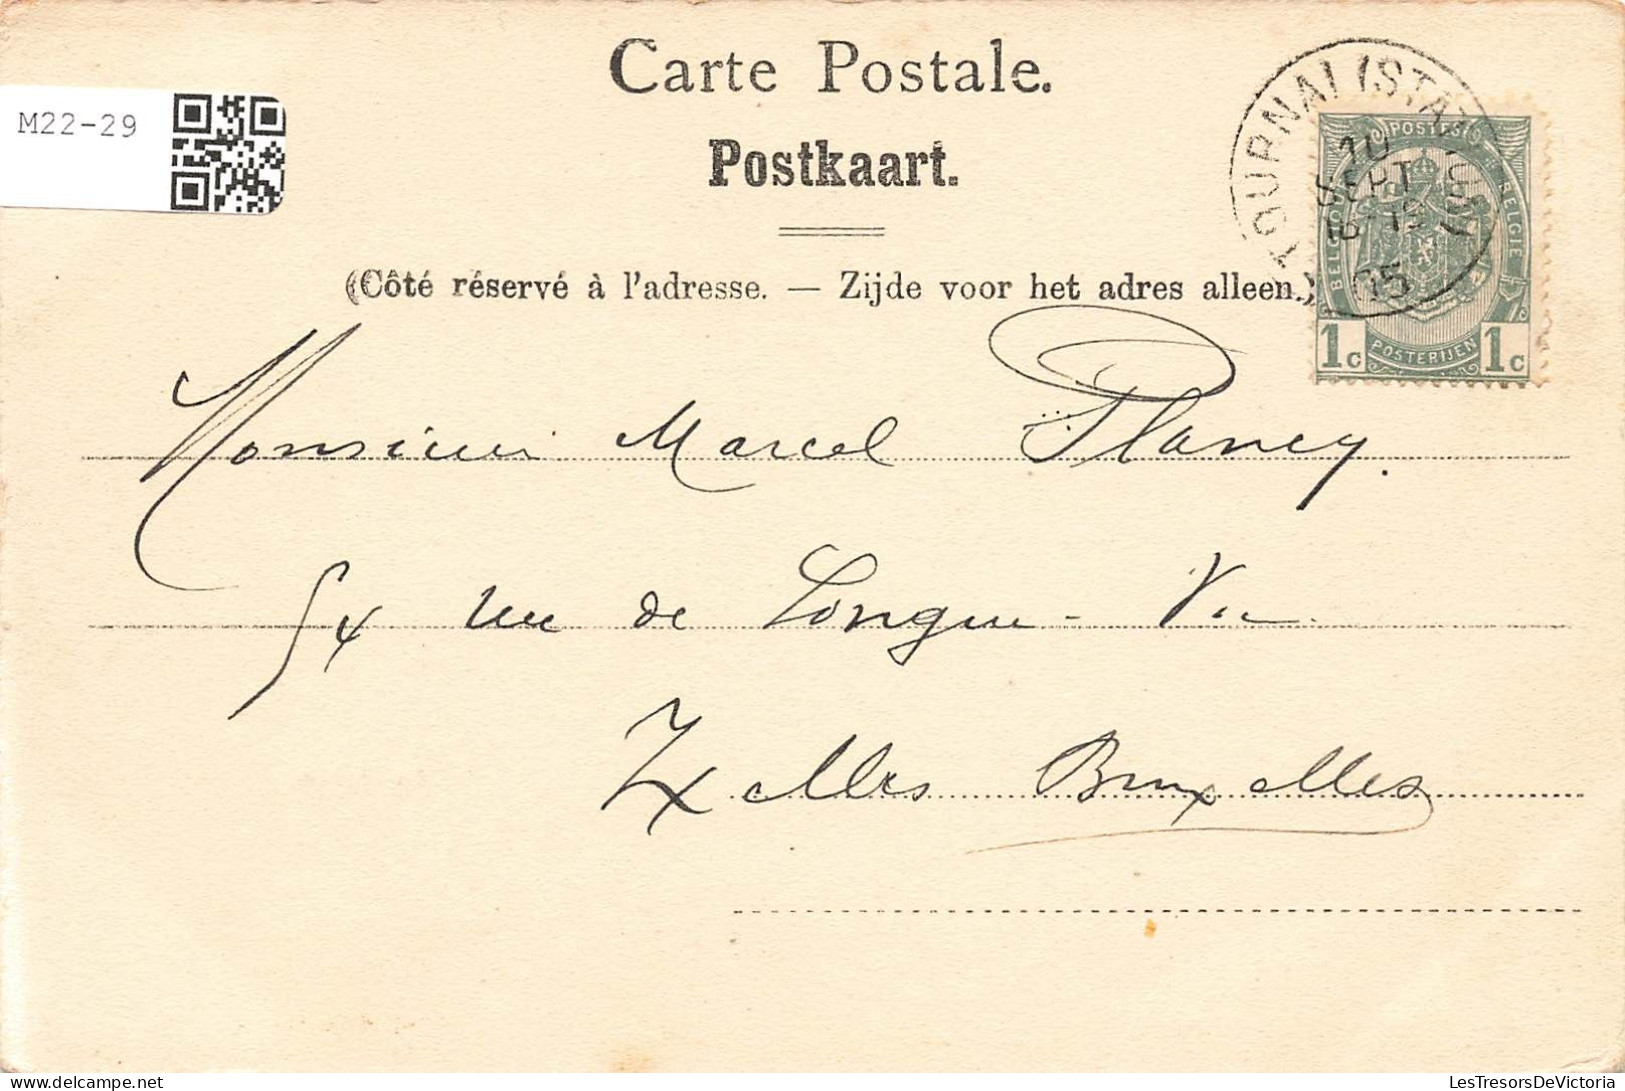 Carte Postale.
Postkaart.
M22-29
(Côté réservé à l'adresse. — Zijde voor het adres alleen.)
TOURNAI (STATION)
10
SEPT
18-19
05
POSTES
BELGIQUE
BELGIË
1c POSTERIJEN 1c
Monsieur Marcel Planey.
54 rue de Longue-Vie
Ixelles Bruxelles
delcampe.net
LesTresorsDeVictoria